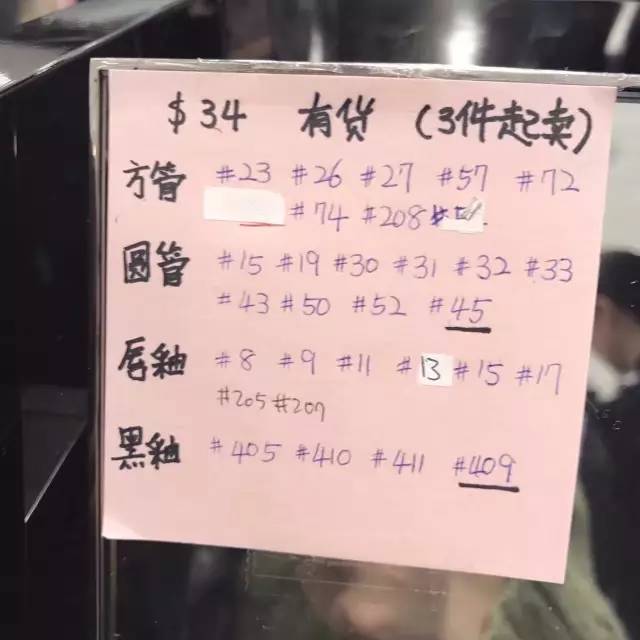 $34 有货 (3件起卖)
方管 #23 #26 #27 #57 #72
#74 #208
圆管 #15 #19 #30 #31 #32 #33
#43 #50 #52 #45
唇釉 #8 #9 #11 #13 #15 #17
#205 #207
黑釉 #405 #410 #411 #409